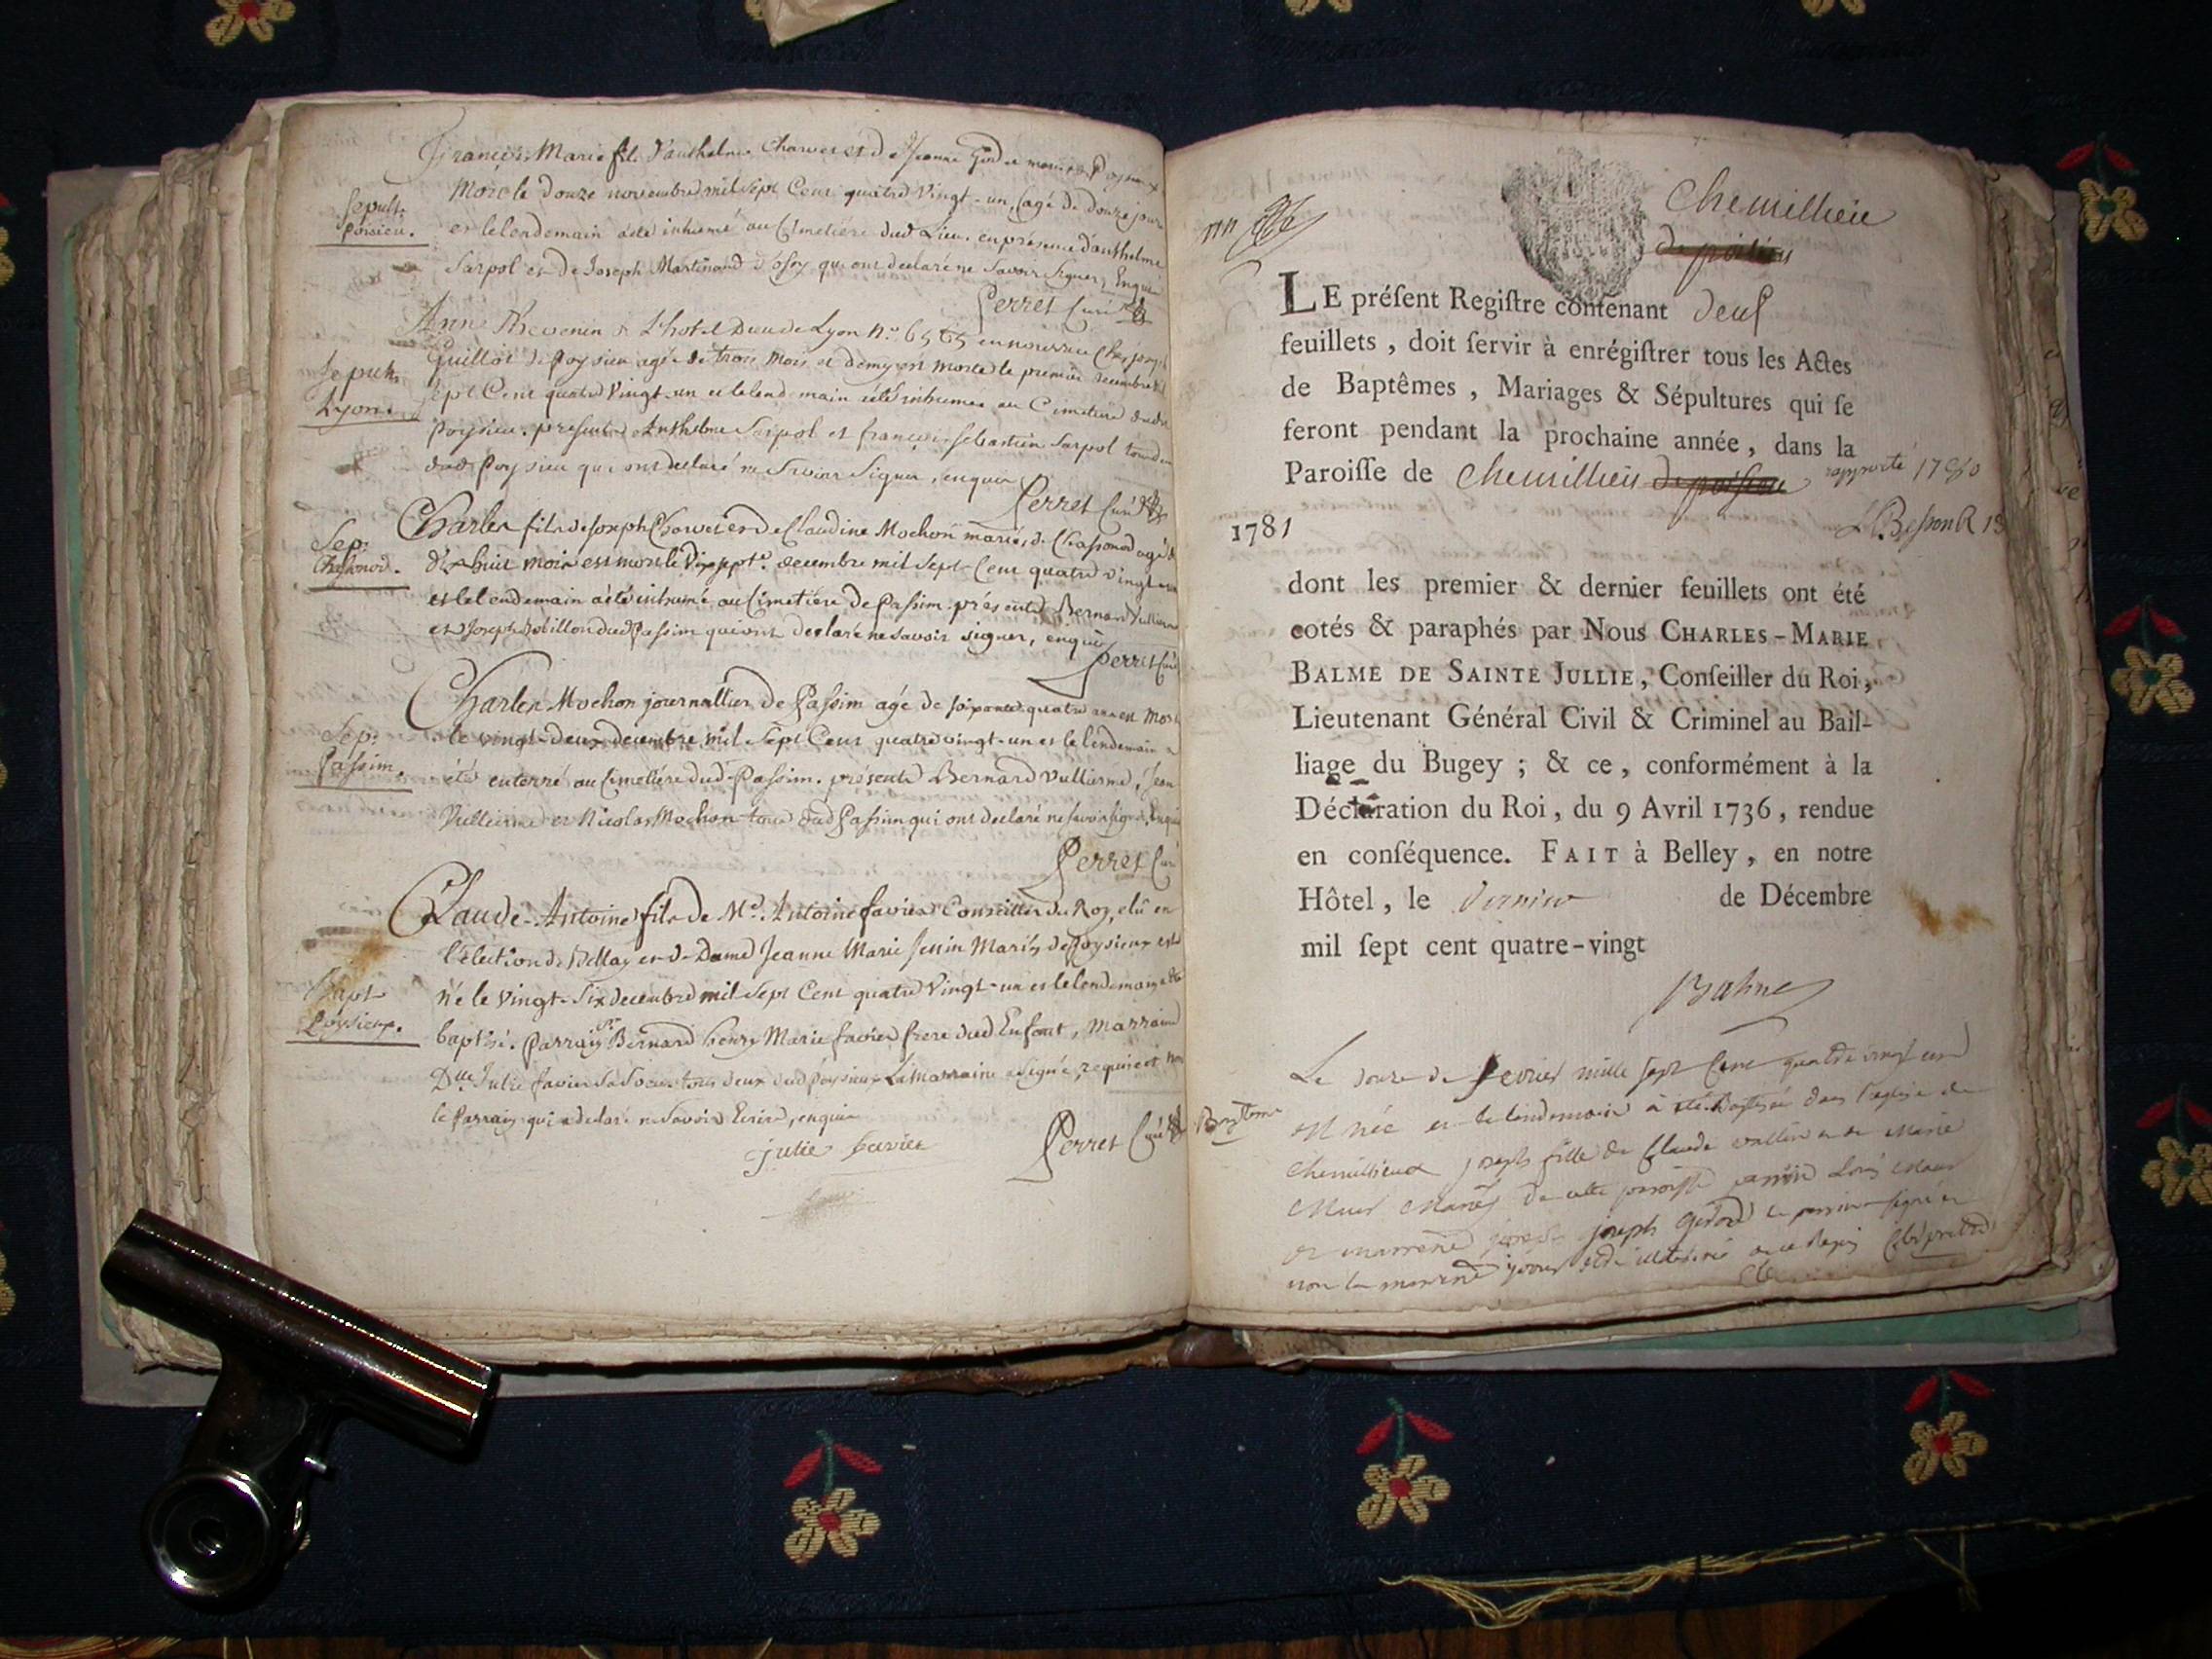 François Marie fils d'anthelme Charvet et de Jeanne mariés
Mort le douze novembre mil sept Cent quatre Vingt-un, agé de douze jours
Sepult.
poisieu.
et le lendemain a été inhumé au Cimetière dud Lieu. en présence d'anthelme
Sarpol et de Joseph Martinand qui ont declaré ne Savoir Signer, Enquis
Perret Curé
Anne Thevenin de L'hotel Dieu de Lyon N.º 6565 en nourrice Chez joseph
Guillot de Poysieu agée de trois Mois et demy est Morte le premier decembre mil
Sepult.
Lyon.
Sept Cent quatre Vingt-un et le lendemain a été inhumée au Cimetiere dud
Poysieu. presents Anthelme Sarpol et françois sebastien Sarpol tous deux
dud Poysieu qui ont declaré ne Savoir Signer, enquis
Perret Curé
Charles fils de Joseph Charvet et de Claudine Mochon mariés, de Chassonod agé de
Sep.
Chassonod.
dix huit mois est mort le Dix sept.e decembre mil Sept-Cent quatre vingt-un
et le lendemain a été inhumé au Cimetiere de Passim. présents Bernard Vullierme
et Joseph dud Passim qui ont declaré ne Savoir signer, enquis
Perret Curé
Charles Mochon journallier de Passim agé de soixante quatre ans est Mort
Sep.
Passim.
le vingt-deux decembre mil Sept Cent quatre vingt-un et le lendemain a
été enterré au Cimetiere dud-Passim. présents Bernard Vullierme, Jean
Vullierme et Nicolas Mochon tous dud Passim qui ont declaré ne savoir signer, Enquis
Perret Curé
Claude-Antoine fils de M.e Antoine favier Conseiller du Roy, elû en
l'élection de Bellay et de Dame Jeanne Marie Jenin Mariés de Poysieux est
Bapt
Poysieux.
né le Vingt-Six decembre mil Sept Cent quatre Vingt-un et le lendemain a été
baptisé. Parrain Bernard henry Marie favier frere dud Enfant, Marraine
D.lle Julie favier Sa Soeur tous deux dud Poysieux La Marraine a Signé, requise et non
le Parrain qui a declaré ne Savoir Ecrire, enquis
julie favier
Perret Curé
Chemillieu
LE préſent Regiſtre contenant deux
feuillets , doit ſervir à enrégiſtrer tous les Actes
de Baptêmes , Mariages & Sépultures qui ſe
feront pendant la prochaine année, dans la
Paroiſſe de Chemillieu rapporté 1780
1781
dont les premier & dernier feuillets ont été
cotés & paraphés par Nous CHARLES-MARIE
BALME DE SAINTE JULLIE, Conſeiller du Roi,
Lieutenant Général Civil & Criminel au Bail-
liage du Bugey ; & ce , conformément à la
Déclaration du Roi , du 9 Avril 1736 , rendue
en conſéquence. FAIT à Belley , en notre
Hôtel , le dernier de Décembre
mil ſept cent quatre-vingt
Balme
Le douze de fevrier mille sept Cent quatre vingt un
Bapteme
est née et le lendemain a été Baptisée dans l'eglise de
Chemillieux joseph fille de Claude vallin et de Marie
mariés de cette paroisse parrin Loüis
et marrene joseph le parrin signé et
non la marrene